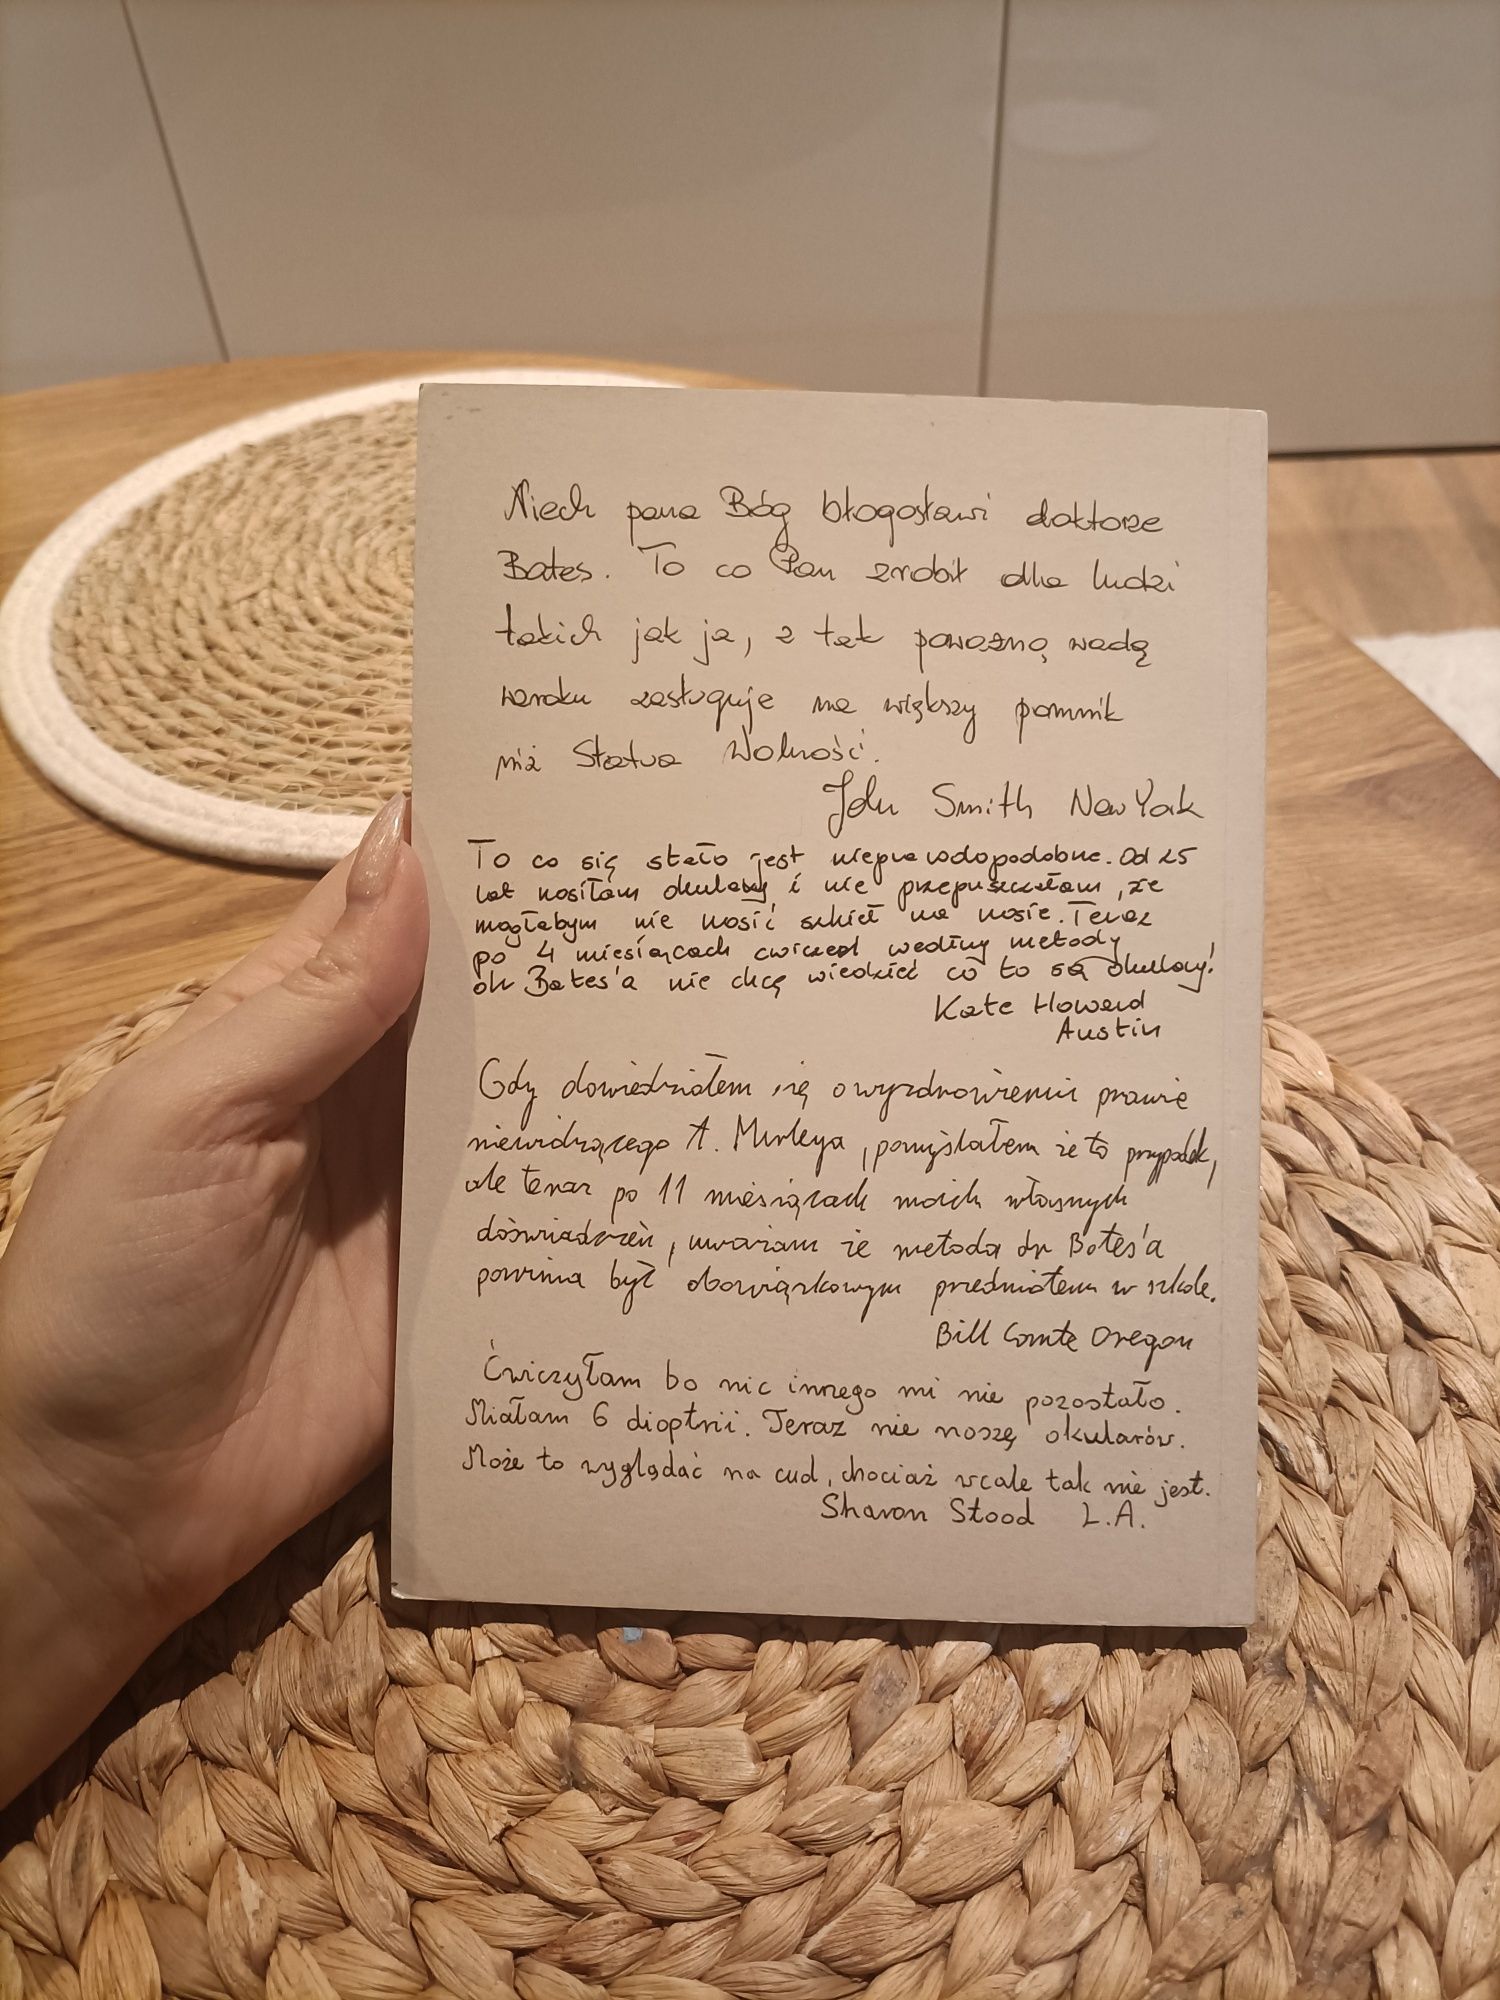 Niech pana Bóg błogosławi doktorze
Bates. To co Pan zrobił dla ludzi
takich jak ja, z tak poważną wadą
wzroku zasługuje na większy pomnik
niż Statua Wolności.
John Smith New York
To co się stało jest nieprawdopodobne. Od 25
lat nosiłam okulary i nie przepuszczałam, że
mogłabym nie nosić szkieł na nosie. Teraz
po 4 miesiącach cwiczeń według metody
dr Bates'a nie chcę wiedzieć co to są okulary!
Kate Howard
Austin
Gdy dowiedziałem się o wyzdrowieniu prawie
niewidzącego A. Murleya, pomyślałem że to przypadek,
ale teraz po 11 miesiącach moich własnych
doświadczeń, uważam że metoda dr Bates'a
powinna być obowiązkowym przedmiotem w szkole.
Bill Comte Oregon
Ćwiczyłam bo nic innego mi nie pozostało.
Miałam 6 dioptrii. Teraz nie noszę okularów.
Może to wyglądać na cud, chociaż wcale tak nie jest.
Sharon Stood L.A.